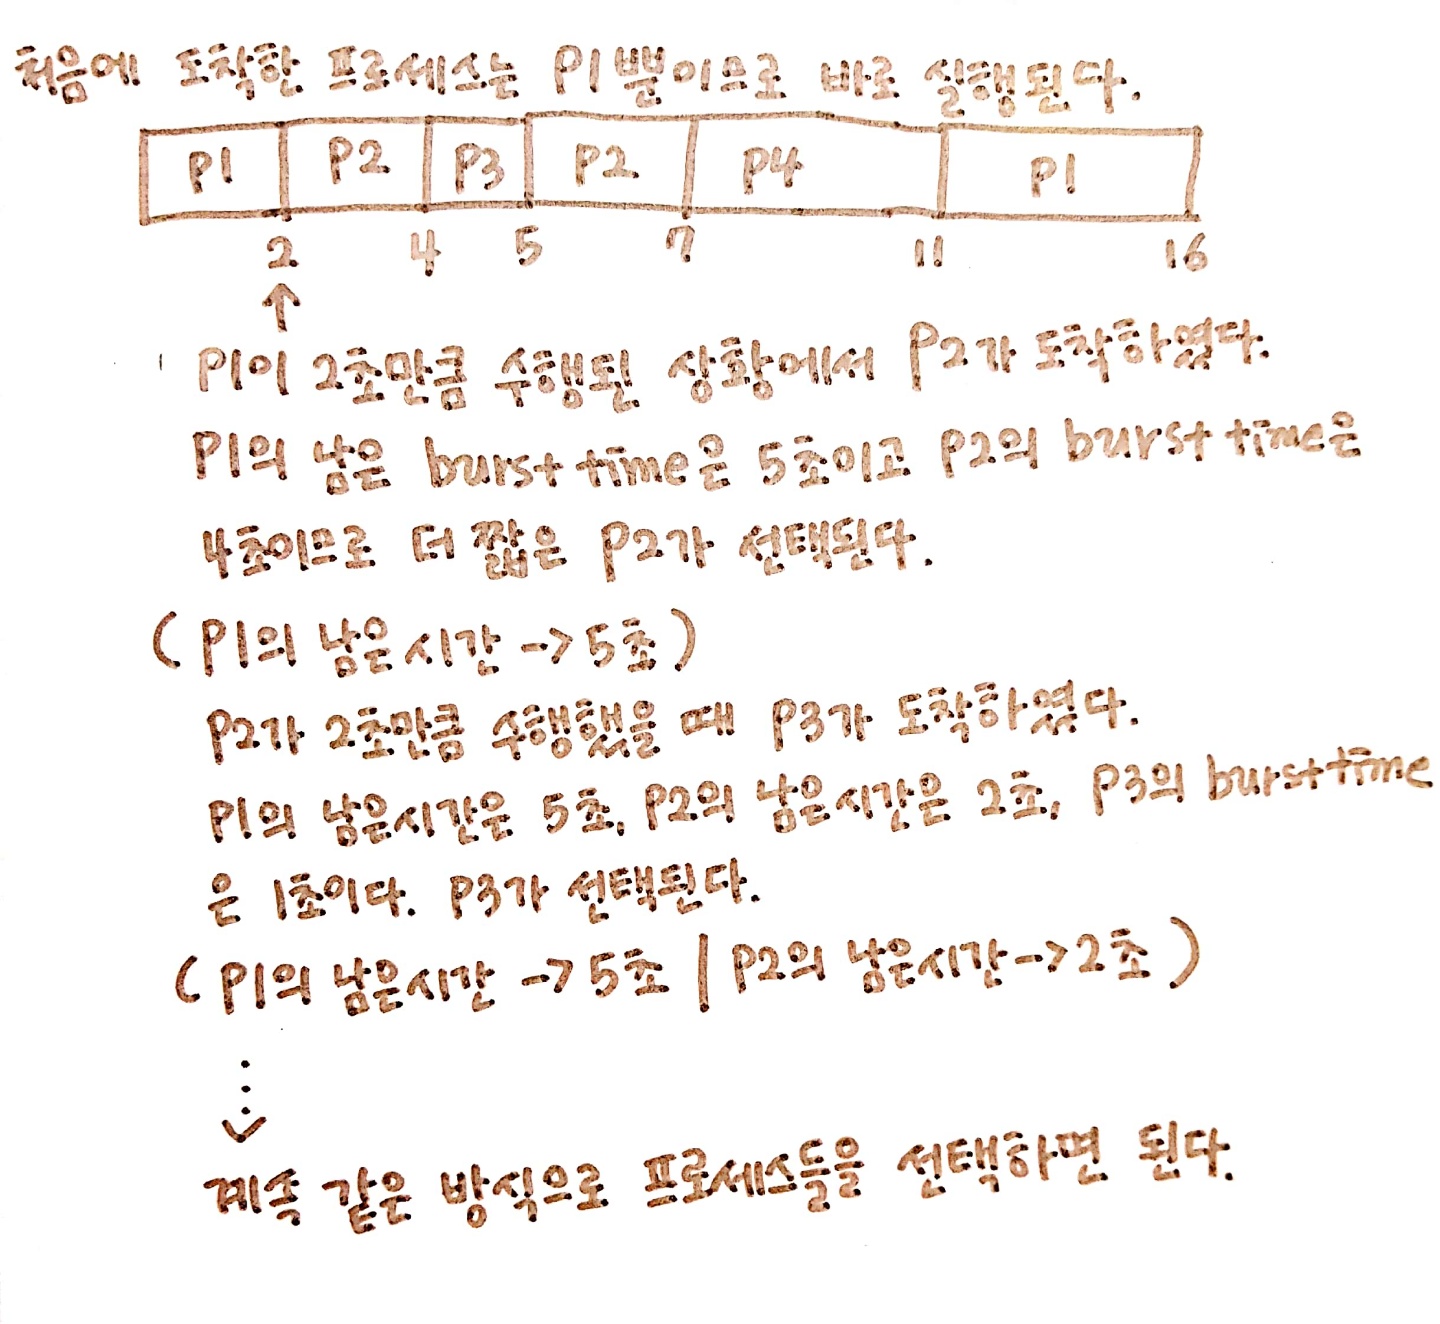 처음에 도착한 프로세스는 P1뿐이므로 바로 실행된다.
P1 P2 P3 P2 P4 P1
2 4 5 7 11 16
↑
P1이 2초만큼 수행된 상황에서 P2가 도착하였다.
P1의 남은 burst time은 5초이고 P2의 burst time은
4초이므로 더 짧은 P2가 선택된다.
(P1의 남은시간 -> 5초)
P2가 2초만큼 수행했을 때 P3가 도착하였다.
P1의 남은시간은 5초, P2의 남은시간은 2초, P3의 burst time
은 1초이다. P3가 선택된다.
(P1의 남은시간 -> 5초 | P2의 남은시간 -> 2초)
계속 같은 방식으로 프로세스들을 선택하면 된다.